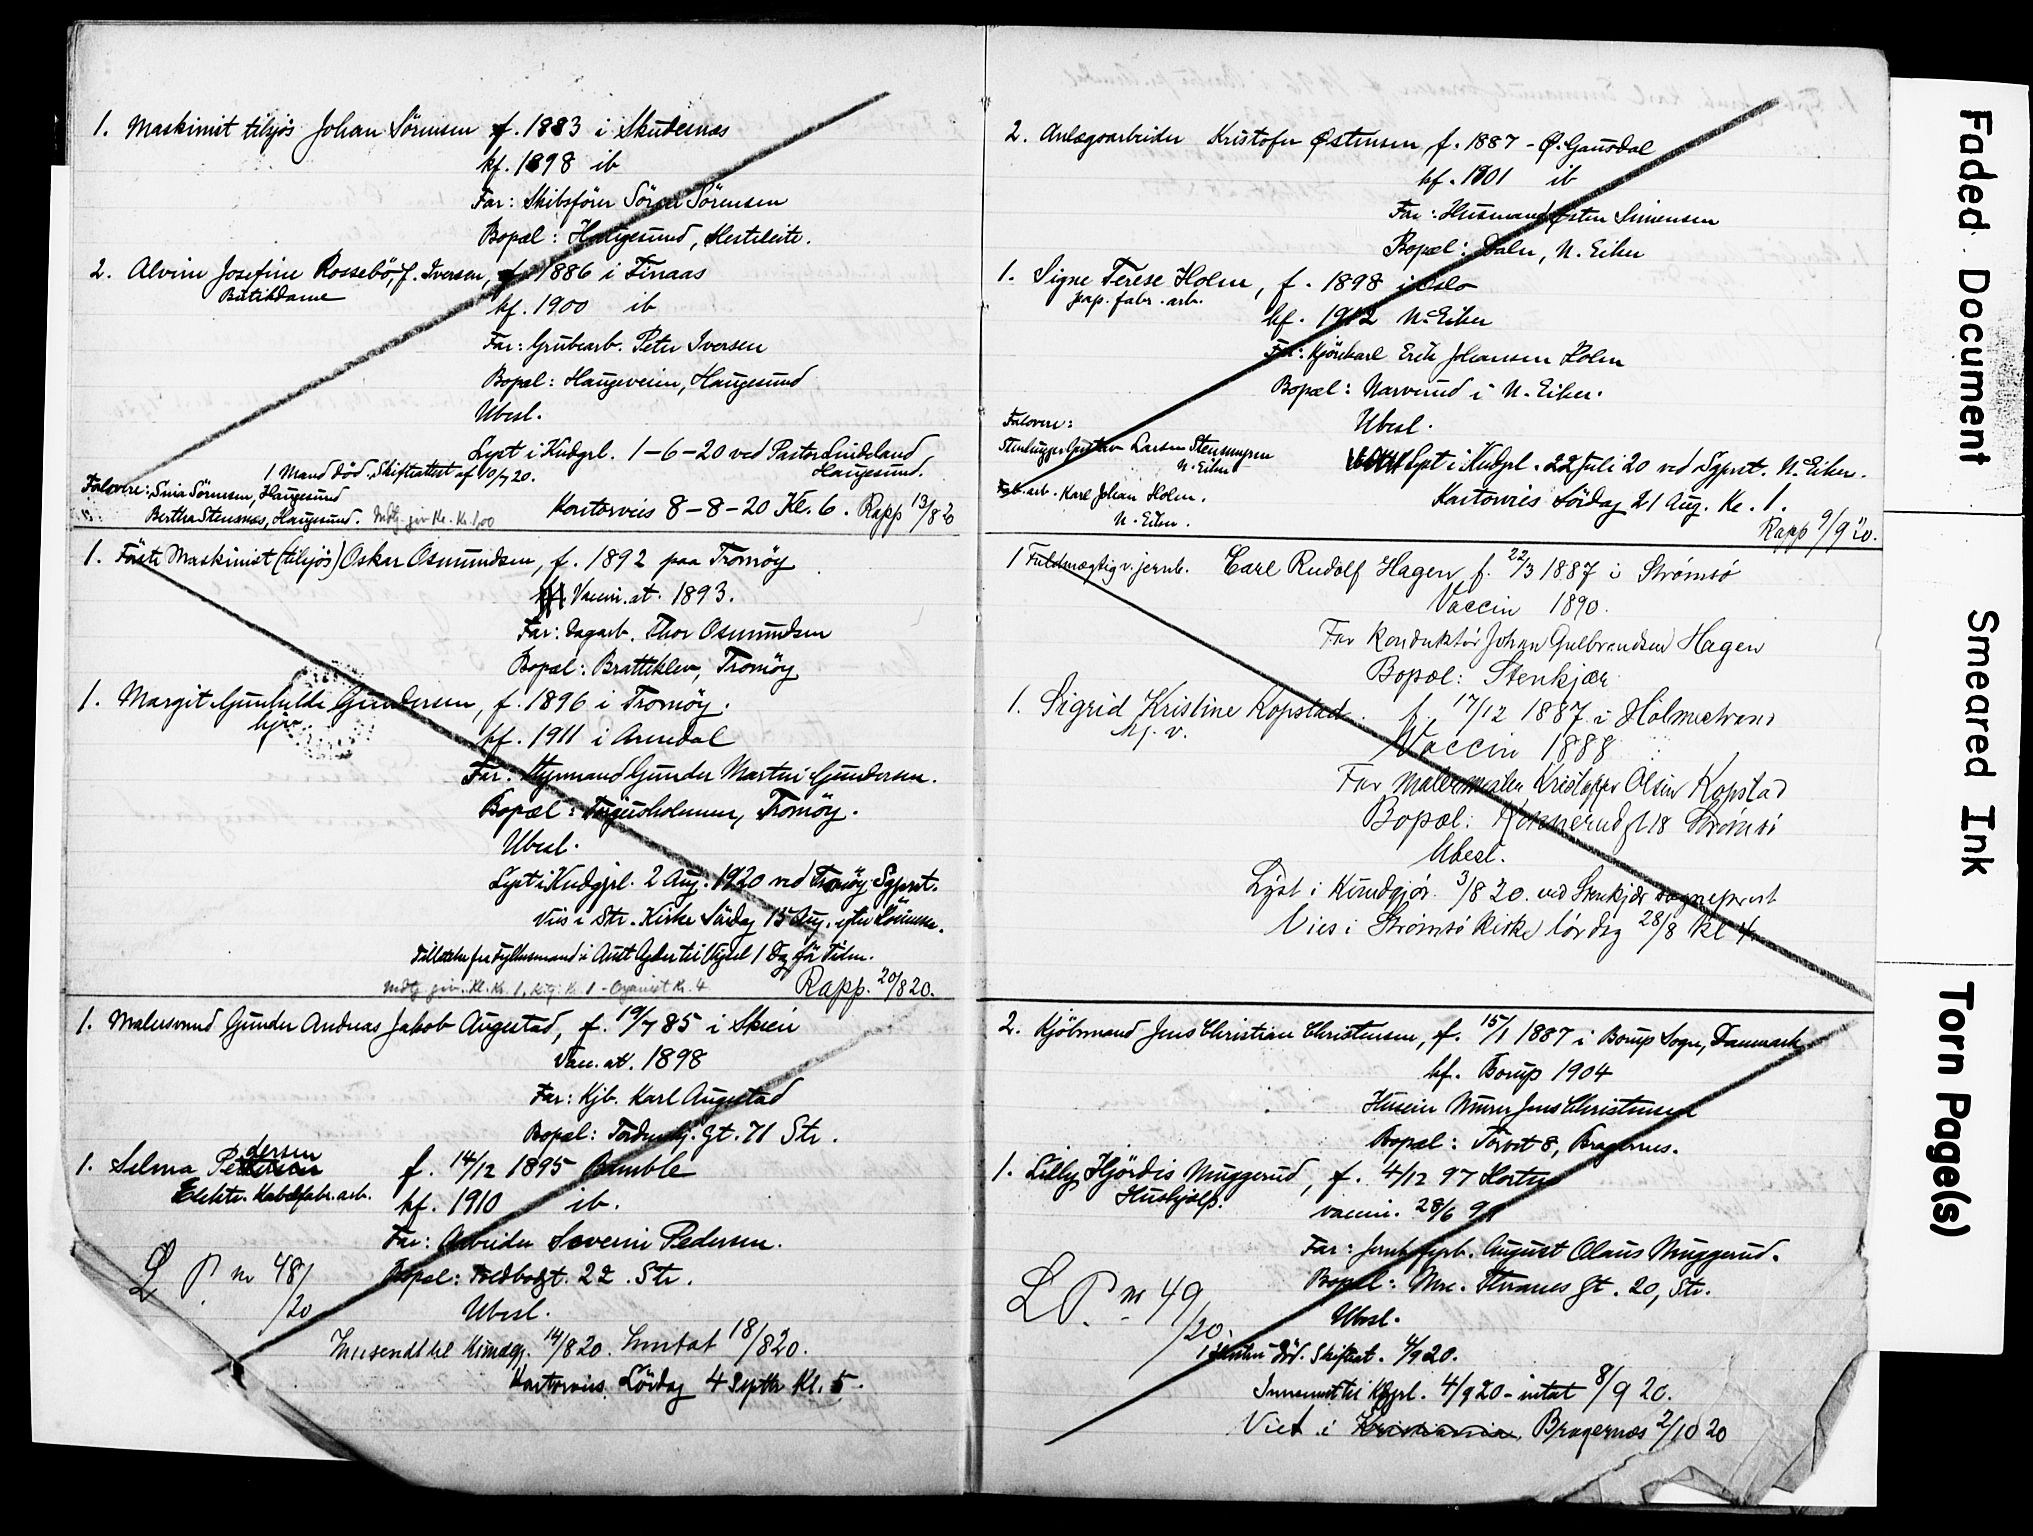 1. Maskinist tilsjös Johan Sörensen f. 1883 i Skudesnæs
kf. 1898 ib
Far: Skibsförer Sören Sörensen
Bopæl: Haugesund,
2. Alvine Josefine Rossebö, f. Iversen, f. 1886 i Finaas
Butikdame
kf. 1900 ib
Far: Grubearb. Peter Iversen
Bopæl: Haugeveien, Haugesund
Ubesl.
Lyst i Kudgpl. 1-6-20 ved Pastor Lindeland
Haugesund.
1 Mand död. Skifteattest af 10/7 20.
Falovere: Sina Sörensen, Haugesund
Bertha Stensnæs, Haugesund. Mdtg. giv. Kl. Kr. 1,00
Kontorvies 8-8-20 Kl. 6. Rapp 13/8 20
1. Förste Maskinist (tilsjös) Oskar Osmundsen, f. 1892 paa Tromöy
Vaccin. at. 1893.
Far: Dagarb. Thor Osmundsen
Bopæl: Bratteklev, Tromöy
1. Margit Gunhilde Gundersen, f. 1896 i Tromöy.
hjv.
kf. 1911 i Arendal
Far: Styrmand Gunder Martin Gundersen.
Bopæl: Torjusholmen, Tromöy.
Ubesl.
Lyst i Kudgpl. 2 Aug. 1920 ved Tromöy Sgprst.
Vies i Str. Kirke Söndag 15 Aug. efter
Tilladelse fra Fylkesmand i Aust Agder til Vigsel 1 Dag för Tiden.
Mdtg. giv. Kl. Kr. 1, Kirg. Kr. 1 - Organist Kr. 4
Rapp. 20/8 20.
1. Malersvend Gunder Andreas Jakob Augestad, f. 19/7 85 i Skien
Vac. at. 1898
Far: Kjb. Karl Augestad
Bopæl: Tordenskj. gt. 71 Str.
1. Selma Pedersen f. 14/12 1895 Bamble
Elektr. Kabelfabr. arb.
kf. 1910 ib.
Far: Arbeider Severin Pedersen.
Bopæl: Toldbodgt. 22. Str.
L P. nr 48/20
Ubesl.
Innsendt til Kundgj. 14/8 20. Inntat 18/8 20.
Kontorvies. Lördag 4 Septbr Kl. 5.
2. Anlægsarbeider Kristofer Østensen f. 1887 - Ø. Gausdal
kf. 1901 ib
Far: Husmand Østen Simensen
Bopæl: Dalen, N. Eiker
1. Signe Terese Holm, f. 1898 i Oslo
pap. fabr. arb.
kf. 1912 N. Eiker
Far: Kjörekarl Erik Johansen Holm
Bopæl: Narverud i N. Eiker.
Ubesl.
Falovere:
Stenhugger Gustav Larsen
N. Eiker
Fab. arb. Karl Johan Holm.
N. Eiker.
Lyst i Kudgpl. 22 Juli 20 ved Sgprst. N. Eiker.
Kontorvies Lördag 21 Aug. Kl. 1.
Rapp 9/9 20.
1 Fuldmægtig v. jernb. Carl Rudolf Hagen f. 22/3 1887 i Strömsö
Vaccin 1890.
Far Konduktör Johan Gulbrandsen Hagen
Bopæl: Stenkjær
1. Sigrid Kristine Kopstad. f. 17/12 1887 i Holmestrand
Hj. v.
Vaccin 1888
Far Malermester Kristoffer Olsen Kopstad
Bopæl: Konnerudgt. 18 Strömsö
Ubesl.
Lyst i Kundgjör. 3/8 20. ved Stenkjær sogneprest
Vies i Strömsö Kirke lördag 28/8 Kl 4
2. Kjöbmand Jens Christian Christensen, f. 15/1 1887 i Borup Sogn, Danmark
kf. Borup 1904
Huseier Murer Jens Christensen
Bopæl: Torvet 8, Bragernes.
1. Lilly Hjördis Muggerud, f. 4/12 97 Horten
Hushjælp.
vaccin. 28/6 98
Far: Jernb. fyrb. August Olaus Muggerud.
Bopæl: Mrc. Thranes gt. 20, Str.
L P. nr 49/20
Ubesl.
1 Hustru död. Skifteat. 4/9 20.
Innsendt til Kgjpl. 4/9 20 - intat 8/9 20.
Viet i Kristiania Bragernæs 2/10 20
Faded Document
Smeared Ink
Torn Page(s)